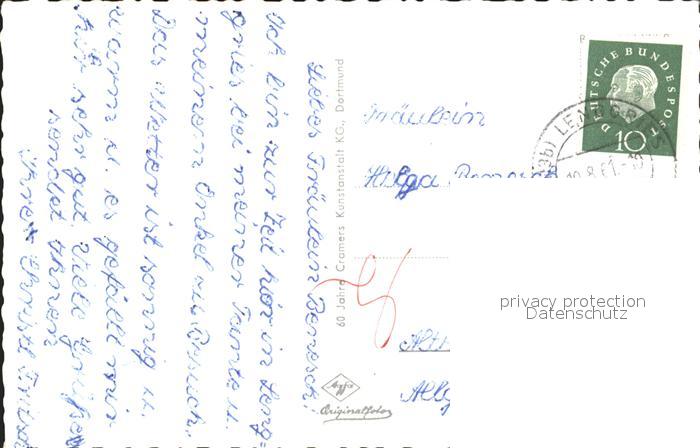 Liebes Fräulein Benesch,
ich bin zur Zeit hier in Leng-
gries bei meiner Tante u.
meinem Onkel auf Besuch.
Das Wetter ist sonnig u.
warm u. es gefällt mir
hier sehr gut. Viele Grüße
sendet Ihnen
Ihre Christl
60 Jahre Cramers Kunstanstalt KG., Dortmund
Agfa
Originalfoto
DEUTSCHE BUNDESPOST
10
LENGGRIES
10.8.61.-18
Fräulein
Helga
Alt
Allg
privacy protection
Datenschutz